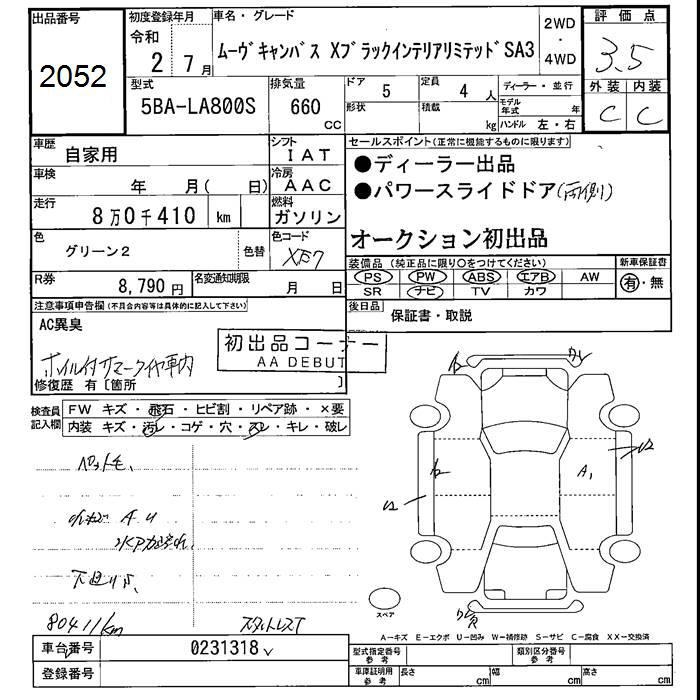 出品番号
2052
初度登録年月
令和
2 7月
車名・グレード
ムーヴキャンバス XブラックインテリアリミテッドSA3
2WD
・
4WD
評価点
3.5
外装 内装
C C
型式
5BA-LA800S
排気量
660
cc
ドア
5
形状
定員
4 人
積載
kg
ディーラー・並行
モデル年式 年
ハンドル 左・右
車歴
自家用
シフト
IAT
車検
年 月( 日)
冷房
AAC
走行
8万0千410 km
燃料
ガソリン
色
グリーン2
色替
色コード
R券
8,790円
名変通知期限
月 日
セールスポイント(正常に機能するものに限ります)
●ディーラー出品
●パワースライドドア(両側)
オークション初出品
装備品(純正品に限り○をつけてください)
PS PW ABS エアB AW
SR ナビ TV カワ
新車保証書
有・無
後日品
保証書・取説
注意事項申告欄(不具合内容等は具体的に記入して下さい)
AC異臭
初出品コーナー
AA DEBUT
修復歴 有〔箇所 〕
検査員記入欄
FW キズ・飛石・ヒビ割・リペア跡・×要
内装 キズ・汚レ・コゲ・穴・スレ・キレ・破レ
ペット毛、
下廻りS、
80411km
スタットレスT
A1
スペア
A-キズ E-エクボ U-凹み W-補修跡 S-サビ C-腐食 XX-交換済
車台番号
0231318
登録番号
型式指定番号
参考
類別区分番号
参考
車庫証明用
参考
長さ cm
幅 cm
高さ cm